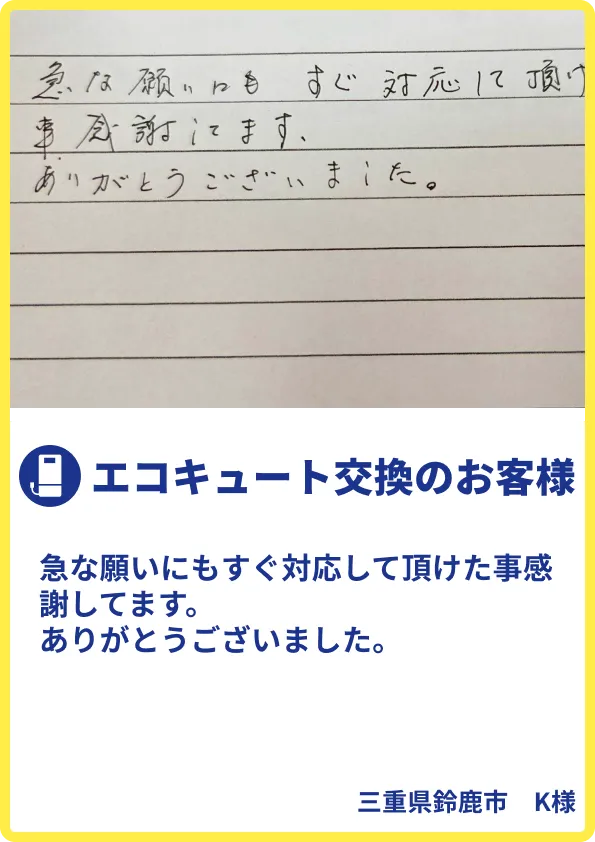 急な願いにも すぐ 対応して頂け
事感謝してます、
ありがとうございました。
エコキュート交換のお客様
急な願いにもすぐ対応して頂けた事感
謝してます。
ありがとうございました。
三重県鈴鹿市　K様